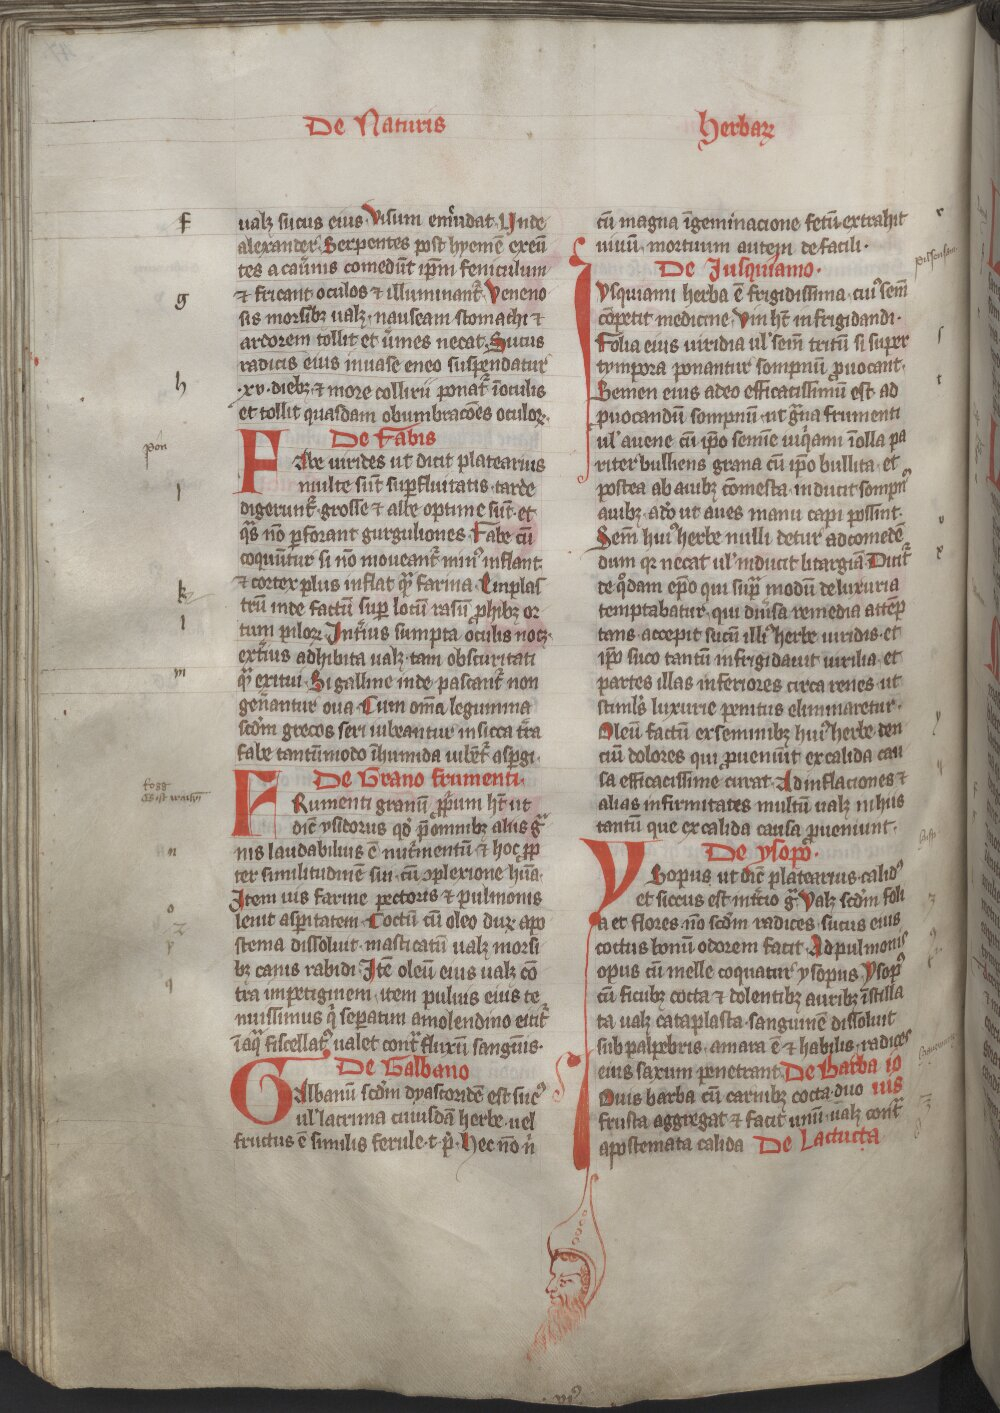 De Naturis
Herbaꝝ
f
ualꝫ sucus eius. Visum emūdat. Unde
alexander. Serpentes post hyemē exeū
tes a cauīnis comedūt ip̄m feniculum
g
⁊ fricant oculos ⁊ illuminant᷑. Veneno
sis morsibꝫ ualꝫ. nauseam stomachi ⁊
ardorem tollit et ūmes necat. Sucus
radicis eius in uase eneo suspendatur
h
.xv. diebꝫ ⁊ more collirii ponat᷑ ī oculis
et tollit quasdam obumbracōes oculoꝝ.
De Fabis
pōn
Fabe uirides ut dicit platearius
i
multe sūt suꝑfluitatis. tarde
digerunt᷑. grosse ⁊ albe optime sūt. et
q̄s nō ꝑforant gurguliones. Fabe cū
coquūtur si nō moueant᷑ minꝰ inflant.
⁊ cortex plus inflat qᷓ farina. Emplas
k
trū inde factū suꝑ locū rasū ꝓhibꝫ or
l
tum piloꝝ. Int̄ius sumpta oculis nocꝫ.
ext̄ius adhibita ualꝫ. tam obscuritati
m
qᷓ exitui. Si galline inde pascant᷑ non
gen̄antur oua. Cum om̄a legumina
scd̄m grecos seri iubeantur in sicca t̄ra
fabe tantūmodo ī humida iubēt᷑ asꝑgi.
De Grano frumenti.
Frumenti granū ꝓp̄um ht̄ ut
dic̄ ysidorus qd̄ p̄ om̄ibꝫ aliis gᷓ
n
nis laudabilius ē nut̄mentū ⁊ hoc ꝓp
ter similitudinē sui cū ꝯplexione hūa.
Item uis farine pectoris ⁊ pulmonis
o
leuit asꝑitatem. Coctū cū oleo dux apo
stema dissoluit. masticatū ualꝫ morsi
p
bꝫ canis rabidi. Itē oleū eius ualꝫ cō
tra impetiginem. item puluis eius te
q
nuissimus q̄ seꝑatim a molendino eicit᷑
ī aqᷓ fiscellatꝰ ualet contᷓ fluxū sanguīs.
De Galbano
Galbanū scd̄m dyascoridē est sucꝰ
ul̓ lacrima cuiusdā herbe. uel
fructus ē similis ferule. t. p̄. Hec nō n̄
r
cū magna īgeminacione fetū extrahit
uiuū. mortuum autem de facili.
De Jusquiamo.
Iusquiami herba ē frigidissima. cuiꝰ sem̄
cōpetit medicine. Vim ht̄ infrigidandi.
s
Folia eius uiridia ul̓ sem̄ tritū si super
tympora ponantur sompnū ꝓuocant.
t
Semen eius adeo efficacissimū est ad
ꝓuocandū sompnū. ut gᷓna frumenti
ul̓ auene cū ip̄o semīe iusqᷓami ī olla pa
riter bulliens grana cū ip̄o bullita. et
postea ab auibꝫ cōmesta. inducit sompnū
auibꝫ. adō ut aues manu capi possint.
v
Sem̄ huiꝰ herbe nulli detur ad comedē
x
dum qꝛ necat ul̓ inducit litargiā. Dicit᷑
de qͦdam ep̄o qui supᷓ modū de luxuria
temptabatur. qui diu̓sa remedia attēp
tans. accepit sucū illiꝰ herbe uiridis. et
ip̄o suco tantū infrigidauit uirilia. et
partes illas inferiores circa renes. ut
stimlꝰs luxurie penitus eliminaretur.
y
Oleū factū ex seminibꝫ huiꝰ herbe. den
ciū dolores qui ꝓueniūt ex calida cau
sa efficacissime curat. Ad inflaciones ⁊
alias infirmitates multū ualꝫ nihus
tantū que ex calida causa ꝓueniunt.
De ysopo.
Ysopus ut dic̄ platearius. calidꝰ
et siccus est in t̄cio gᷓ. Valꝫ scd̄m foli
a et flores. nō scd̄m radices. sucus eius
coctus bonū odorem facit. Ad pulmonis
opus cū melle coquatur ysopus. Ysopꝰ
cū ficubꝫ cocta ⁊ dolentibꝫ auribꝫ īstilla
ta ualꝫ cataplasta. sanguinē dissoluit
sub palpebris. amara ē ⁊ habilis. radices
eius saxum penetrant. De Barba io
uis
Ouis barba cū carnibꝫ cocta. duo
frusta aggregat ⁊ facit unū. ualꝫ contᷓ
apostemata calida De Lactuca